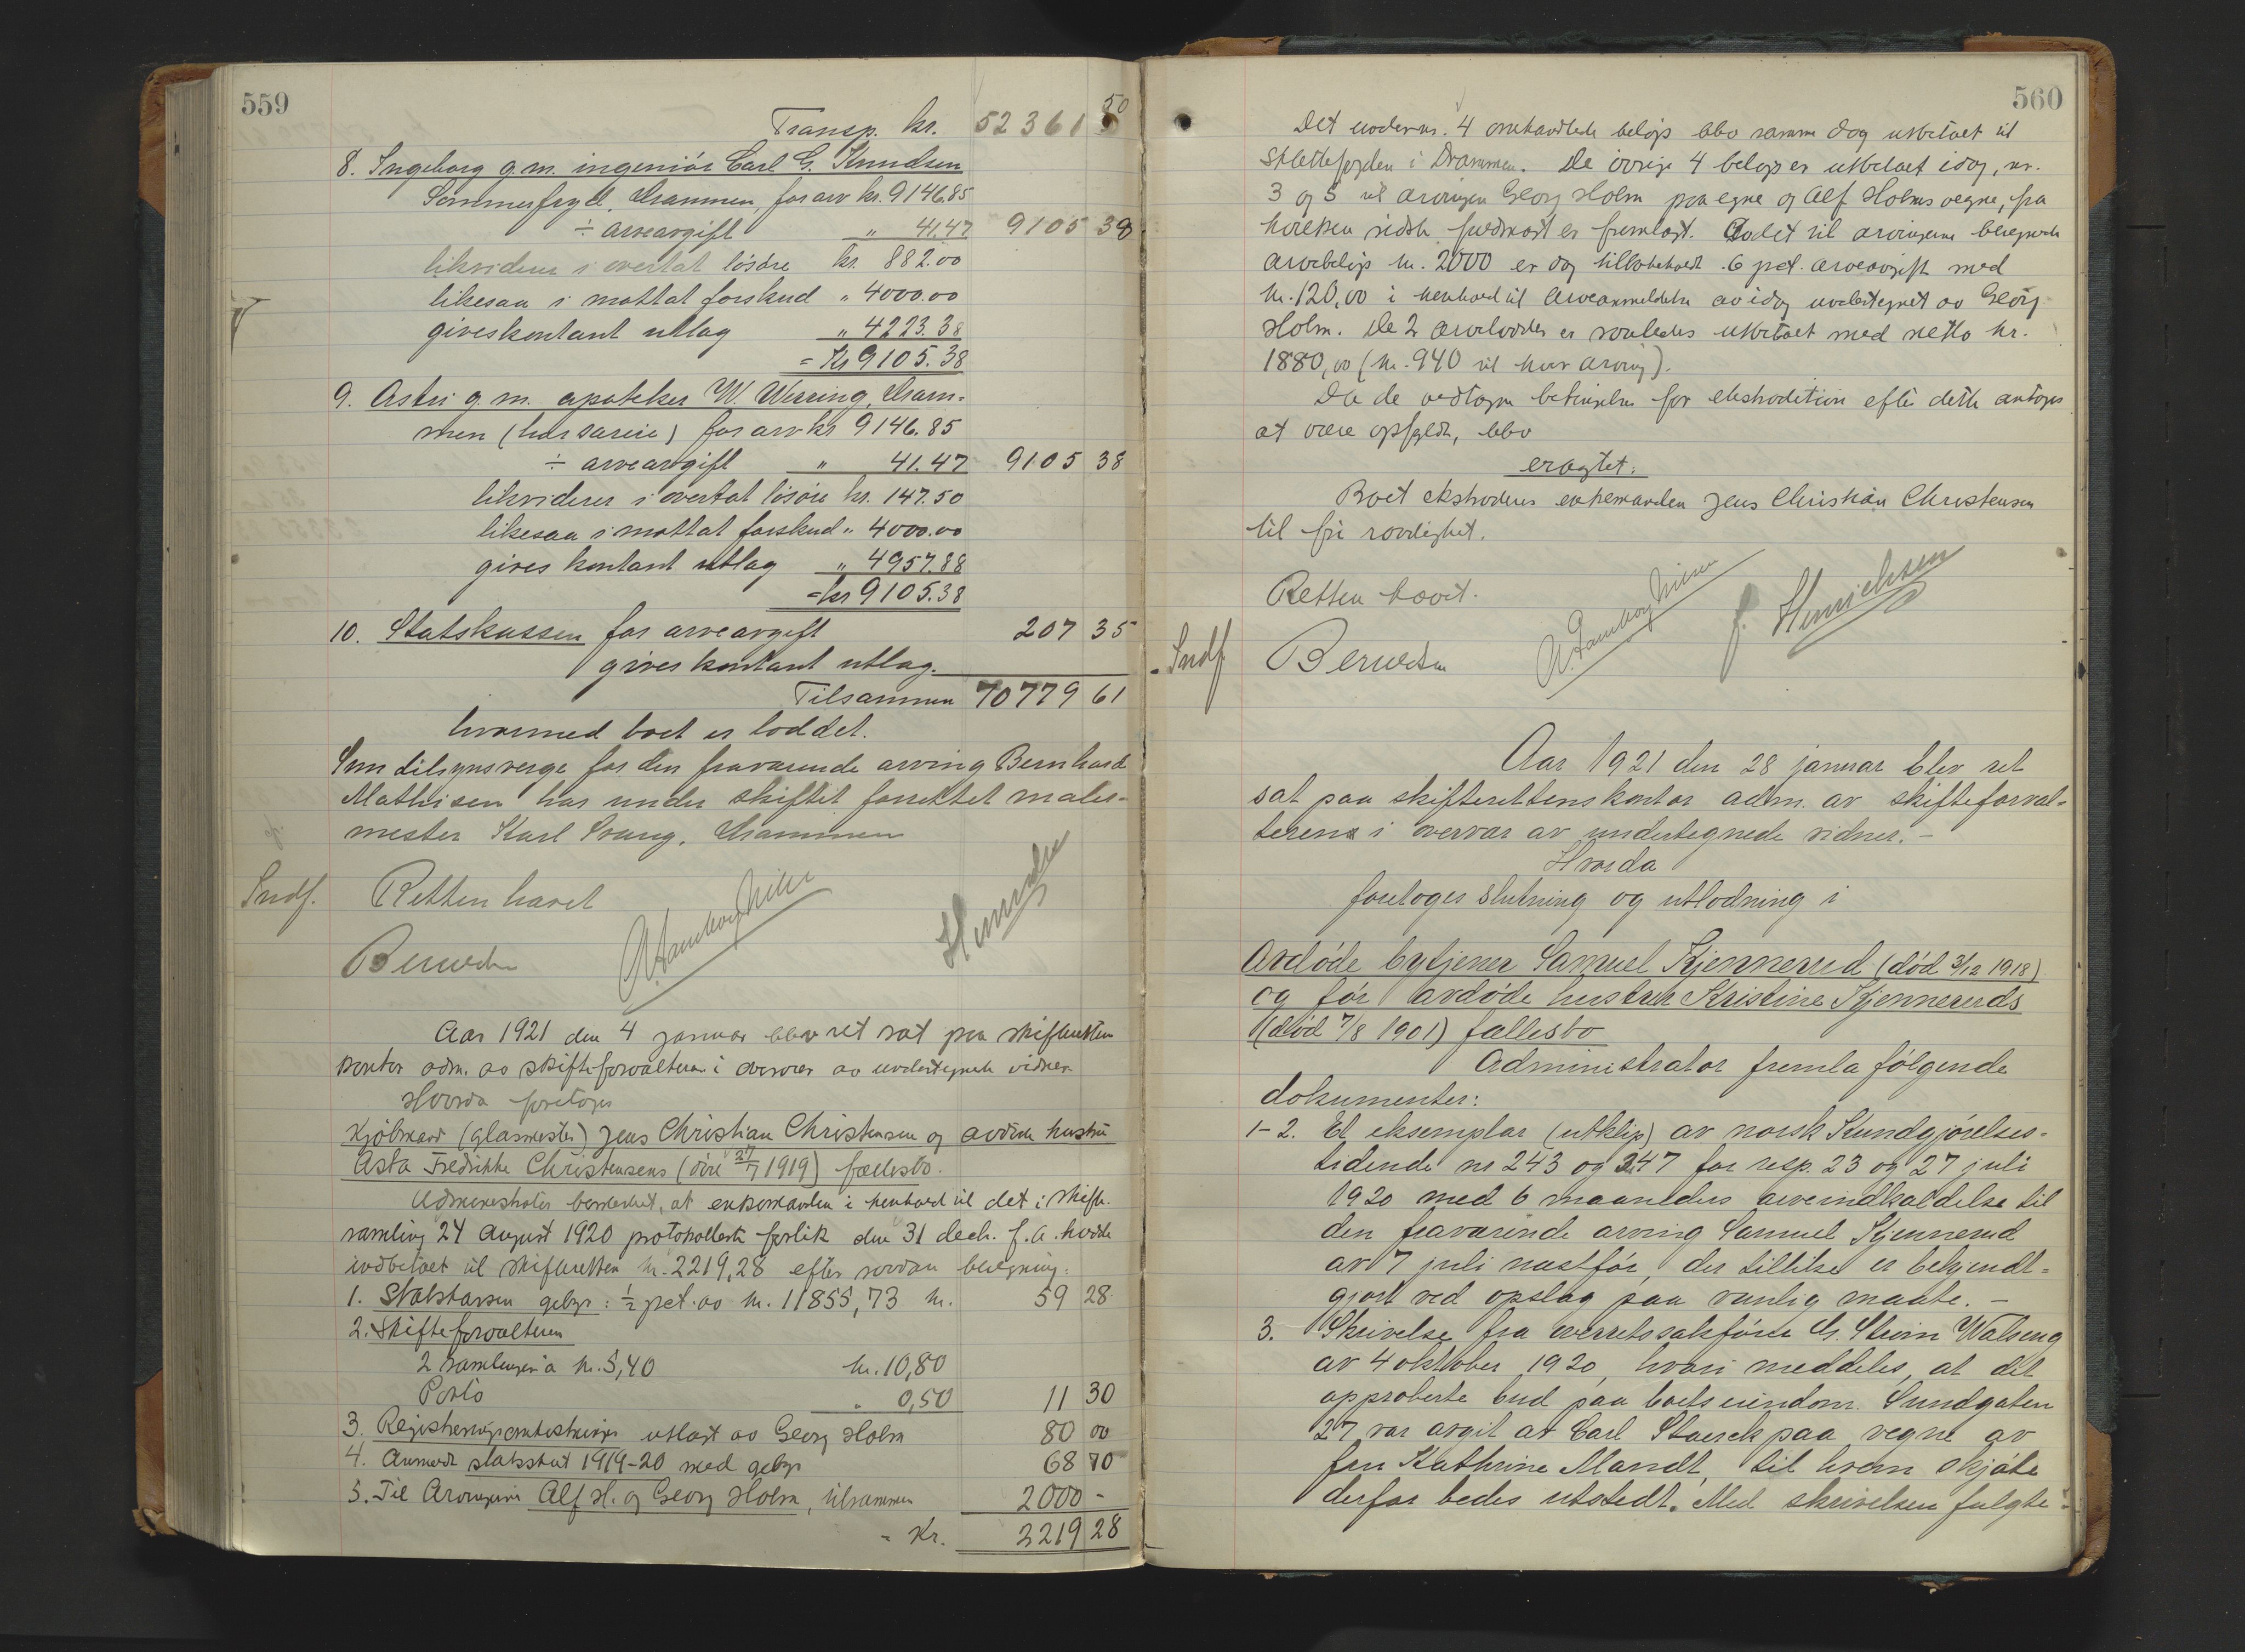 559
Transp. kr. 52361 50
8. Ingeborg g.m. ingeniør Carl G. Knudsen
Sommerfryd, Drammen, for arv kr. 9146.85
÷ arveavgift " 41.47 9105 38
likviderer i overtat løsøre kr. 882.00
likesaa i mottat forskud " 4000.00
gives kontant utlag " 4223.38
= Kr 9105.38
9. Astri g.m. apoteker W. Werring, Dram=
men (har særeie) for arv kr 9146.85
÷ arveavgift " 41.47 9105 38
likviderer i overtat løsøre kr. 147.50
likesaa i mottat forskud " 4000.00
gives kontant utlag " 4957.88
= kr 9105.38
10. Statskassen for arveavgift 207 35
gives kontant utlag.
Tilsammen 70779 61
hvormed boet er loddet.
Som tilsynsverge for den fraværende arving Bernhard
Mathisen har under skiftet forrettet maler-
mester Karl Svang, Drammen
Indf. Retten hævet
Aar 1921 den 4 januar blev ret sat paa skifterettens
kontor adm. av skifteforvalteren i overvær av undertegnede vidner
Hvorda foretoges
Kjøbmand (glasmester) Jens Christian Christensen og avdøde hustru
Asta Fredrikke Christensens (død 27/7 1919) fællesbo.
Administrator bemerket, at enkemanden i henhold til det i skifte-
samling 24 august 1920 protokollerte forlik den 31 decb. f.a. hadde
indbetalt til skifteretten kr. 2219,28 efter saadan beregning:
1. Statskassen gebyr: ½ pct. av kr. 11855,73 kr. 59 28
2. Skifteforvalteren
2 samlinger a kr. 5,40 kr. 10,80
Porto " 0,50 11 30
3. Registreringsomkostninger utlagt av Georg Holm 80 00
4. Anmeldt statsskat 1919-20 med gebyr 68 70
5. Til Arvingerne Alf H. og Georg Holm, tilsammen 2000 -
= Kr. 2219 28
560
Det under nr. 4 omhandlede beløp blev samme dag utbetalt til
skattefogden i Drammen. De øvrige 4 beløp er utbetalt idag, nr.
3 og 5 til arvingen Georg Holm paa egne og Alf Holms vegne, fra
hvilken sidste fuldmagt er fremlagt. I det til arvingerne beregnede
arvebeløp kr. 2000 er dog tilbakeholdt 6 pct. arveavgift med
kr. 120,00 i henhold til Arveanmeldelse av idag undertegnet av Georg
Holm. De 2 arvelodder er saaledes utbetalt med netto kr.
1880,00 (kr. 940 til hver arving).
Da de vedtagne betingelser for ekstradition efter dette antoges
at være opfyldt, blev
eragtet:
Boet ekstraderes enkemanden Jens Christian Christensen
til fri raadighet.
Retten hævet.
Indf. J. Henrichsen
Aar 1921 den 28 januar blev ret
sat paa skifterettens kontor adm. av skifteforval=
teren i overvær av undertegnede vidner. -
Hvorda
foretoges slutning og utlodning i
Avdøde bytjener Samuel Kjennerud (død 3/12 1918)
og før avdøde hustru Kristine Kjenneruds
(død 7/8 1901) fællesbo
Administrator fremla følgende
dokumenter:
1-2. Et eksemplar (utklip) av norsk Kundgjørelses-
tidende nr 243 og 247 for resp. 23 og 27 juli
1920 med 6 maaneders arveindkaldelse til
den fraværende arving Samuel Kjennerud
av 7 juli næstfør, der tillike er bekjendt=
gjort ved opslag paa vanlig maate. -
3. Skrivelse fra overretssakfører Hr. Stivin Walseng
av 4 oktober 1920, hvori meddeles, at det
approberte bud paa boets eiendom Sundgaten
27 var avgit av Carl Staerck paa vegne av
fru Kathrine Mandt, til hvem skjøte
derfor bedes utstedt. Med skrivelsen fulgte